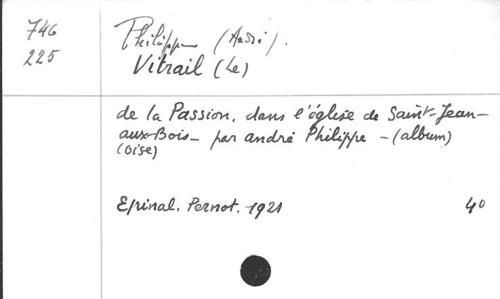 746
225
Philippe (André).
Vitrail (Le)
de la Passion, dans l'église de Saint-Jean-
aux-Bois - par andré Philippe - (album)
(Oise)
Epinal. Pernot. 1921 4°